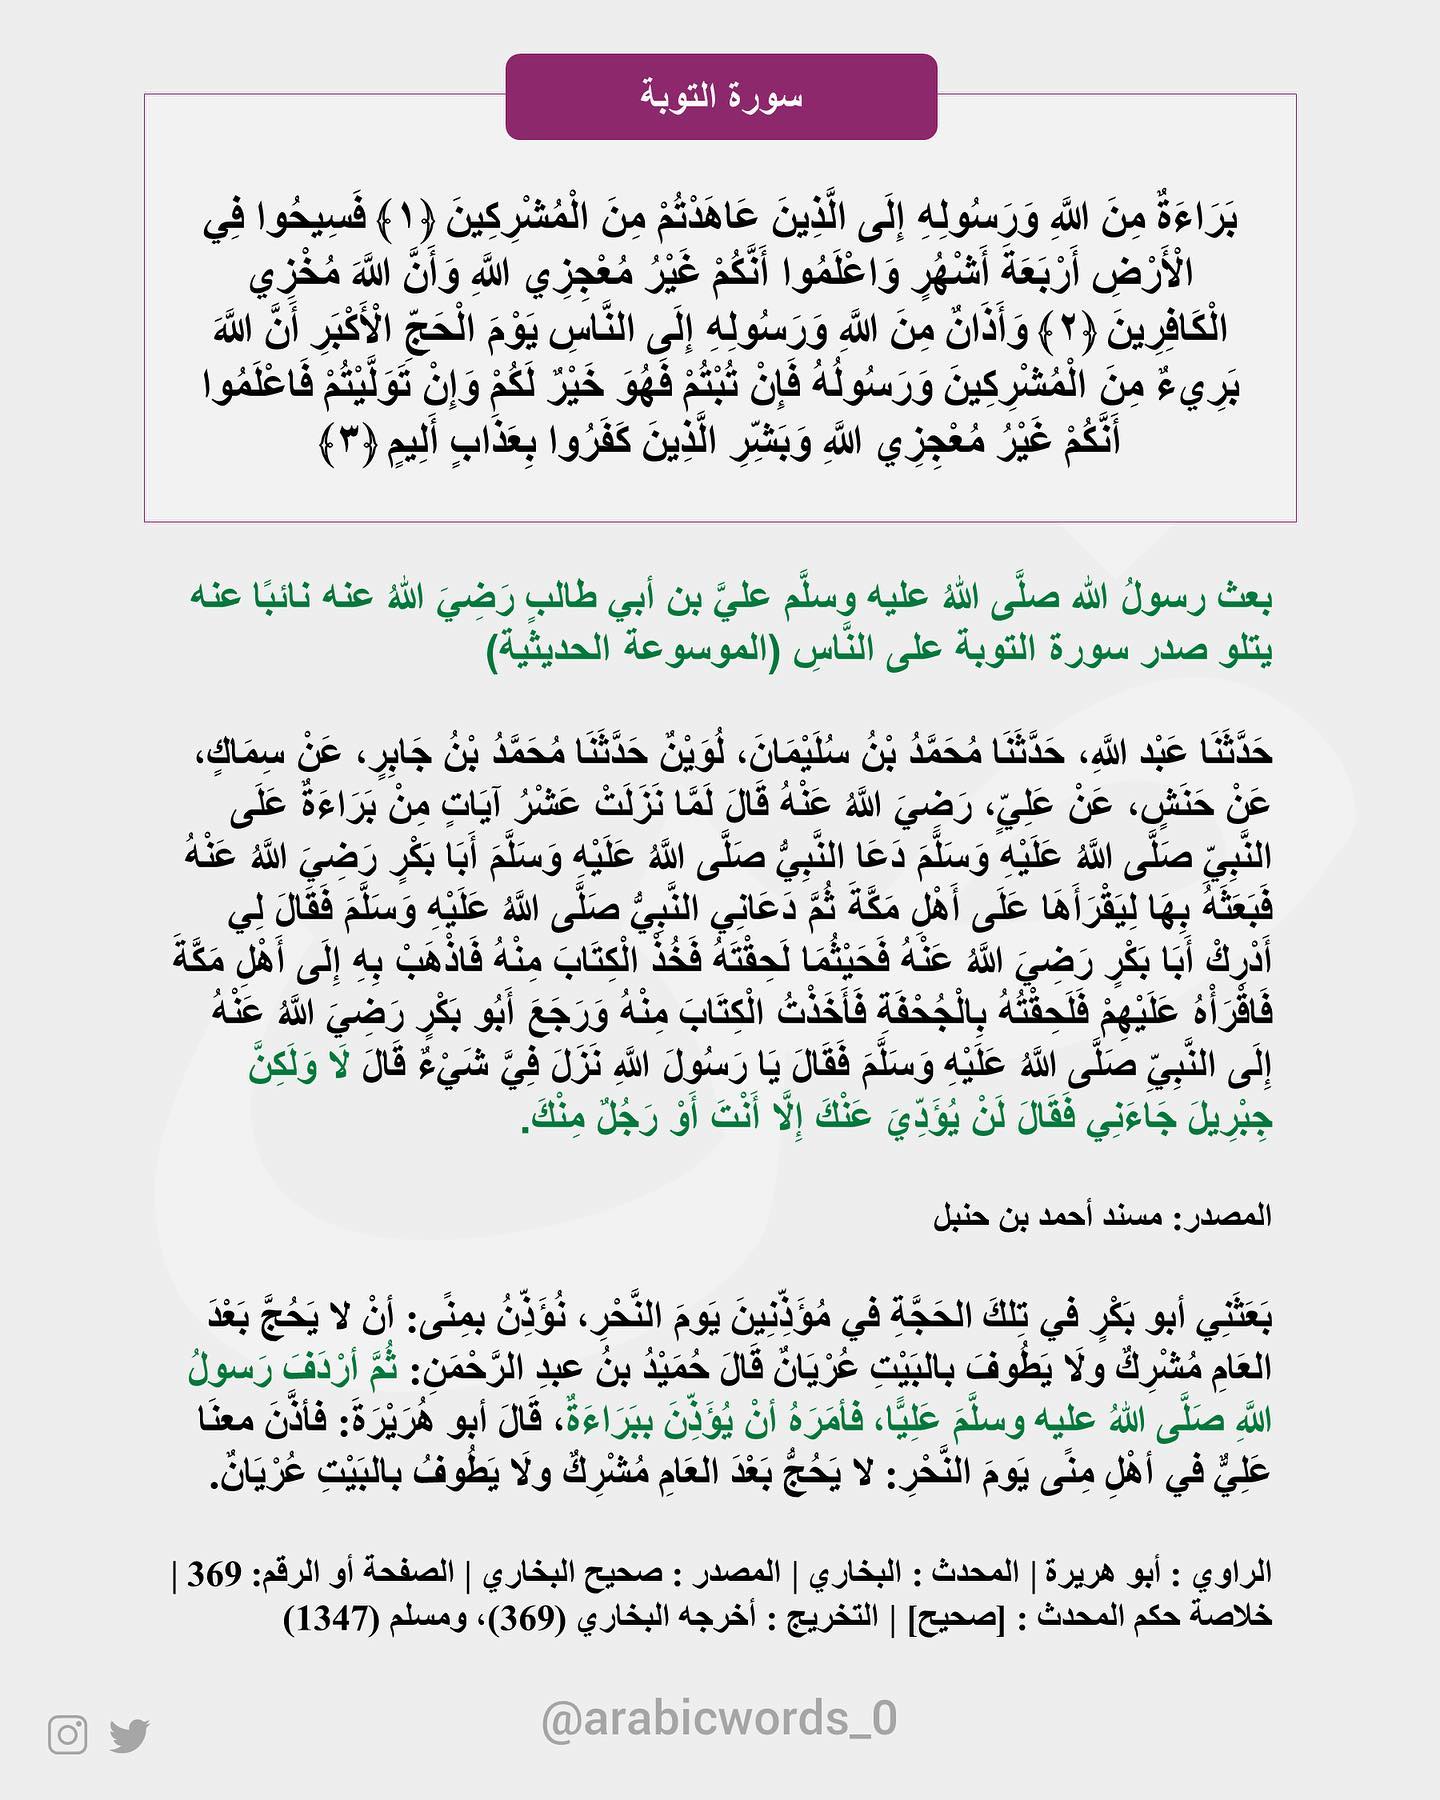 سورة التوبة
بَرَاءَةٌ مِنَ اللَّهِ وَرَسُولِهِ إِلَى الَّذِينَ عَاهَدْتُمْ مِنَ الْمُشْرِكِينَ ﴿١﴾ فَسِيحُوا فِي
الْأَرْضِ أَرْبَعَةَ أَشْهُرٍ وَاعْلَمُوا أَنَّكُمْ غَيْرُ مُعْجِزِي اللَّهِ وَأَنَّ اللَّهَ مُخْزِي
الْكَافِرِينَ ﴿٢﴾ وَأَذَانٌ مِنَ اللَّهِ وَرَسُولِهِ إِلَى النَّاسِ يَوْمَ الْحَجِّ الْأَكْبَرِ أَنَّ اللَّهَ
بَرِيءٌ مِنَ الْمُشْرِكِينَ وَرَسُولُهُ فَإِنْ تُبْتُمْ فَهُوَ خَيْرٌ لَكُمْ وَإِنْ تَوَلَّيْتُمْ فَاعْلَمُوا
أَنَّكُمْ غَيْرُ مُعْجِزِي اللَّهِ وَبَشِّرِ الَّذِينَ كَفَرُوا بِعَذَابٍ أَلِيمٍ ﴿٣﴾
بعث رسولُ الله صلَّى اللهُ عليه وسلَّم عليَّ بن أبي طالبٍ رَضِيَ اللهُ عنه نائبًا عنه
يتلو صدر سورة التوبة على النَّاسِ (الموسوعة الحديثية)
حَدَّثَنَا عَبْد اللَّهِ، حَدَّثَنَا مُحَمَّدُ بْنُ سُلَيْمَانَ، لُوَيْنٌ حَدَّثَنَا مُحَمَّدُ بْنُ جَابِرٍ، عَنْ سِمَاكٍ،
عَنْ حَنَشٍ، عَنْ عَلِيٍّ، رَضِيَ اللَّهُ عَنْهُ قَالَ لَمَّا نَزَلَتْ عَشْرُ آيَاتٍ مِنْ بَرَاءَةٌ عَلَى
النَّبِيِّ صَلَّى اللَّهُ عَلَيْهِ وَسَلَّمَ دَعَا النَّبِيُّ صَلَّى اللَّهُ عَلَيْهِ وَسَلَّمَ أَبَا بَكْرٍ رَضِيَ اللَّهُ عَنْهُ
فَبَعَثَهُ بِهَا لِيَقْرَأَهَا عَلَى أَهْلِ مَكَّةَ ثُمَّ دَعَانِي النَّبِيُّ صَلَّى اللَّهُ عَلَيْهِ وَسَلَّمَ فَقَالَ لِي
أَدْرِكْ أَبَا بَكْرٍ رَضِيَ اللَّهُ عَنْهُ فَحَيْثُمَا لَحِقْتَهُ فَخُذْ الْكِتَابَ مِنْهُ فَاذْهَبْ بِهِ إِلَى أَهْلِ مَكَّةَ
فَاقْرَأْهُ عَلَيْهِمْ فَلَحِقْتُهُ بِالْجُحْفَةِ فَأَخَذْتُ الْكِتَابَ مِنْهُ وَرَجَعَ أَبُو بَكْرٍ رَضِيَ اللَّهُ عَنْهُ
إِلَى النَّبِيِّ صَلَّى اللَّهُ عَلَيْهِ وَسَلَّمَ فَقَالَ يَا رَسُولَ اللَّهِ نَزَلَ فِيَّ شَيْءٌ قَالَ لَا وَلَكِنَّ
جِبْرِيلَ جَاءَنِي فَقَالَ لَنْ يُؤَدِّيَ عَنْكَ إِلَّا أَنْتَ أَوْ رَجُلٌ مِنْكَ.
المصدر: مسند أحمد بن حنبل
بَعَثَنِي أبو بَكْرٍ في تِلكَ الحَجَّةِ في مُؤَذِّنِينَ يَومَ النَّحْرِ، نُؤَذِّنُ بمِنًى: أنْ لا يَحُجَّ بَعْدَ
العَامِ مُشْرِكٌ ولَا يَطُوفَ بالبَيْتِ عُرْيَانٌ قَالَ حُمَيْدُ بنُ عبدِ الرَّحْمَنِ: ثُمَّ أرْدَفَ رَسولُ
اللَّهِ صَلَّى اللهُ عليه وسلَّمَ عَلِيًّا، فأمَرَهُ أنْ يُؤَذِّنَ ببَرَاءَةٌ، قَالَ أبو هُرَيْرَةَ: فأذَّنَ معنَا
عَلِيٌّ في أهْلِ مِنًى يَومَ النَّحْرِ: لا يَحُجُّ بَعْدَ العَامِ مُشْرِكٌ ولَا يَطُوفُ بالبَيْتِ عُرْيَانٌ.
الراوي : أبو هريرة | المحدث : البخاري | المصدر : صحيح البخاري | الصفحة أو الرقم: 369 |
خلاصة حكم المحدث : [صحيح] | التخريج : أخرجه البخاري (369)، ومسلم (1347)
@arabicwords_0